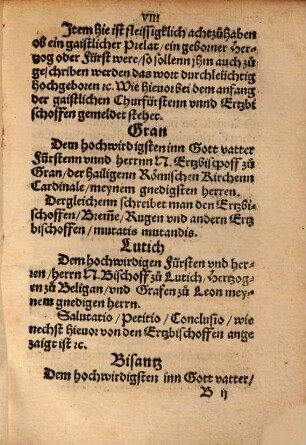 VIII
Jtem hie ist fleissigklich acht zů haben
ob ein gaistlicher Prelat / ein geborner Hertzog
zog oder Fürst were / so sollenn jhm auch zů
geschriben werden das wort durchleüchtig
hochgeboren ꝛc. Wie hieuor bei dem anfang
der gaistlichen Churfürstenn vnnd Ertzbi
schoffen gemeldet stehet.
Gran
Dem hochwirdigsten inn Gott vatter
Fürstenn vnnd herrnn N. Ertzbischoff zů
Gran / der hailigenn Römischen Kirchenn
Cardinale / meynem gnedigsten herren.
Dergleichenn schreibet man den Ertzbi-
schoffen / Breme / Rugen vnd andern Ertz
bischoffen / mutatis mutandis.
Lutich
Dem hochwirdigen Fürsten vnd her-
ren / herrn N. Bischoff zů Lutich / Hertzog-
en zů Beligan / vnd Grafen zů Leon mey-
nem gnedigen herrn.
Salutatio / Petitio / Conclusio / wie
nechst hieuor von den Ertzbischoffen ange
zaigt ist ꝛc.
Bisantz
Dem hochwirdigsten inn Gott vatter /
B ij